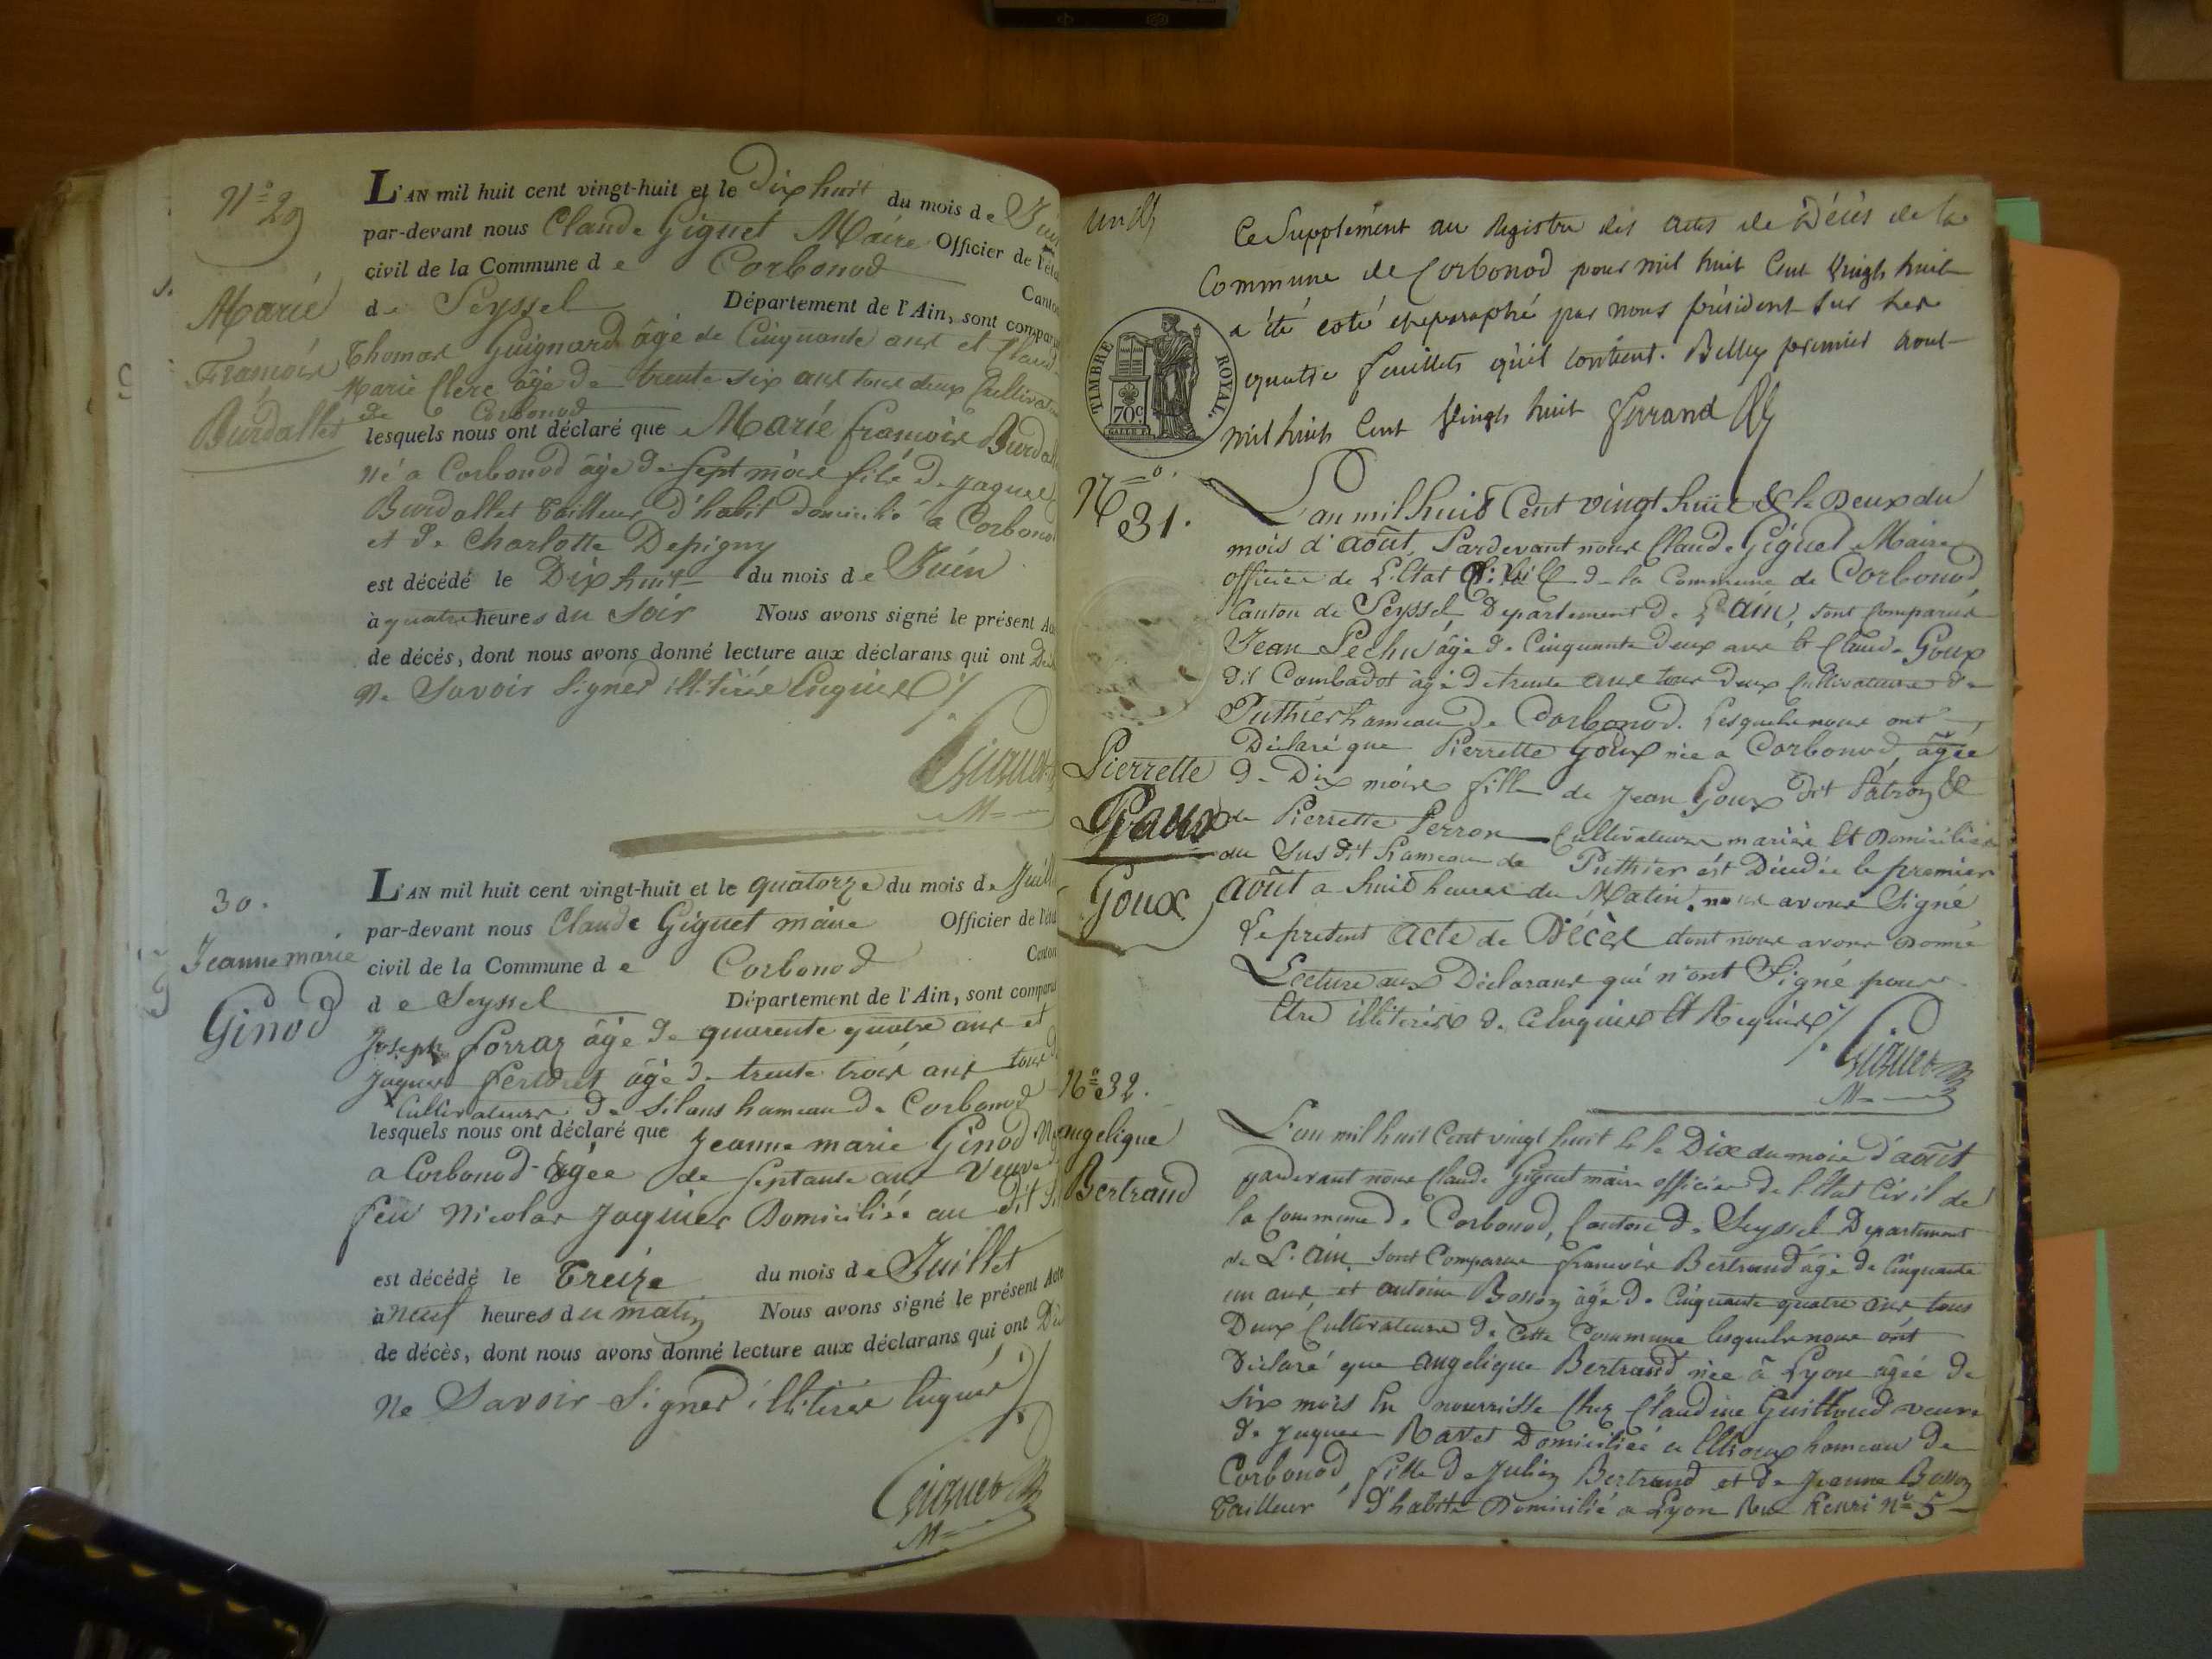 N° 29
Marie
Francoise
Burdallet
L'AN mil huit cent vingt-huit et le Dix huit du mois de Juin
par-devant nous Claude Giguet Maire Officier de l'éta
civil de la Commune de Corbonod Canton
de Seyssel Département de l'Ain, sont comparu
Thomas Guignard âgé de Cinquante ans et Claude
Marie Clerc âgé de trente six ans tous deux Cultivateu
de Corbonod
lesquels nous ont déclaré que Marie francoise Burdall
né a Corbonod âgé de sept mois file de Jaques
Burdallet tailleur d'habit Domicilié a Corbonod
et de Charlotte Depigny
est décédé le Dix huit du mois de Juin
à quatre heures du Soir Nous avons signé le présent Ac
de décès, dont nous avons donné lecture aux déclarans qui ont Déc
Ne Savoir Signer illitéré Enquis
Giguet
M
30.
Jeanne marie
Ginod
L'AN mil huit cent vingt-huit et le quatorze du mois de Juill
par-devant nous Claude Giguet maire Officier de l'éta
civil de la Commune de Corbonod Canton
de Seyssel Département de l'Ain, sont comparu
Joseph forraz âgé de quarente quatre ans et
Jaques âgé de trente trois ans tous d
Cultivateurs de Silans hameau de Corbonod
lesquels nous ont déclaré que Jeanne marie Ginod Né
a Corbonod âgée de septante ans Veuve d
feu Nicolas Jaquier Domiciliée au dit Si
est décédé le Treize du mois de Juillet
à neuf heures du matin Nous avons signé le présent Acte
de décès, dont nous avons donné lecture aux déclarans qui ont Déc
Ne Savoir Signer illitérés Enquis
Giguet
M
un
Ce Supplément au Registre des actes de Décès de la
Commune de Corbonod pour mil huit Cent Vingt huit
a été coté et paraphé par nous président sur les
quatre feuillets qu'il contient. Belley premier Aout
mil huit Cent Vingt huit Ferrand
TIMBRE ROYAL.
70c
N° 31.
L'an mil huit Cent vingt huit & le Deux du
mois d'août, Pardevant nous Claude Giguet Maire
officier de L'Etat Civil de la Commune de Corbonod,
Canton de Seyssel, Departement de L'Ain, sont Comparus
Jean Pechu âgé de Cinquante Deux ans & Claude Goux
dit Combadot âgé de trente ans tous Deux Cultivateurs de
Puthier hameau de Corbonod. Lesquels nous ont
Déclaré que Pierrette Goux née a Corbonod, âgée
de Dix mois fille de Jean Goux dit Patron &
de Pierrette Perron Cultivateurs mariés Et Domiciliés
au Susdit hameau de Puthier est Décédée le premier
août a huit heures du Matin, nous avons Signé
Le présent acte de Décès dont nous avons Donné
Lecture aux Déclarans qui n'ont Signé pour
Etre illitérés de ce Enquis Et Requis
Giguet
M
Pierrette
Goux
N° 32.
angelique
Bertrand
L'an mil huit Cent vingt huit & le Dix du mois d'août
pardevant nous Claude Giguet maire officier de l'Etat Civil de
la Commune de Corbonod, Canton de Seyssel Departement
de L'Ain, sont Comparus francois Bertrand âgé de Cinquante
un ans, et antoine Bosson âgé de Cinquante quatre ans tous
Deux Cultivateurs de Cette Commune lesquels nous ont
Déclaré que angelique Bertrand née à Lyon âgée de
six mois En nourrisse Chez Claudine Guilloud veuve
de Jaques Ravet Domiciliée a hameau de
Corbonod, fille de Julien Bertrand et de Jeanne Bosson
tailleur D'habits Domicilié a Lyon Rue Henri N° 5